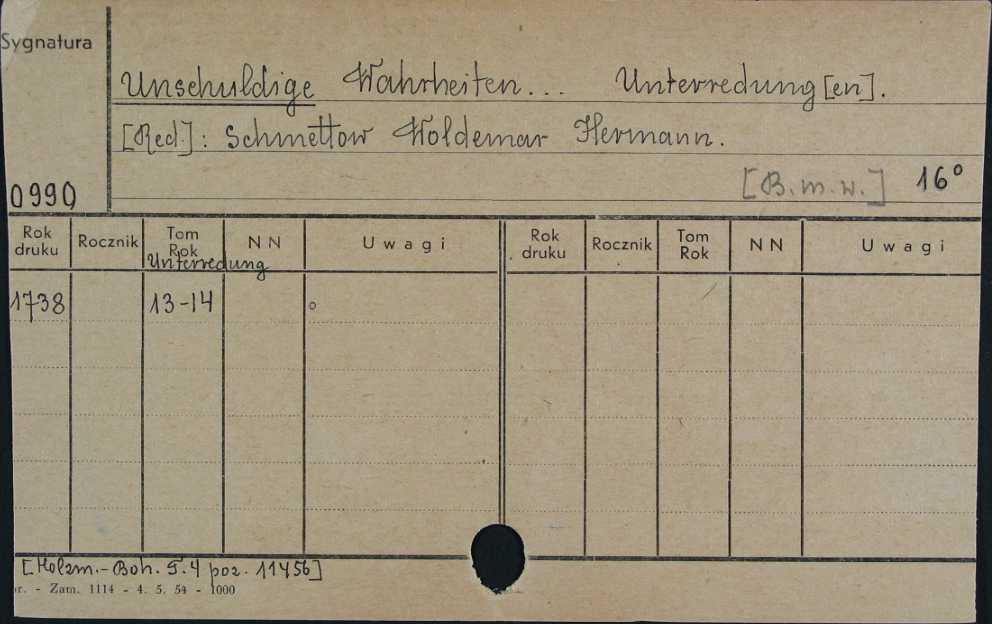 Sygnatura
Unschuldige Wahrheiten... Unterredung[en].
[Red.]: Schmettow Woldemar Hermann.
[B.m.w.] 16°
0990
Rok druku Rocznik Tom Rok NN Uwagi Rok druku Rocznik Tom Rok NN Uwagi
Unterredung
1738 13-14 °
[Holzm.-Boh. T.4 poz. 11456]
r. - Zam. 1114 - 4. 5. 54 - 1000